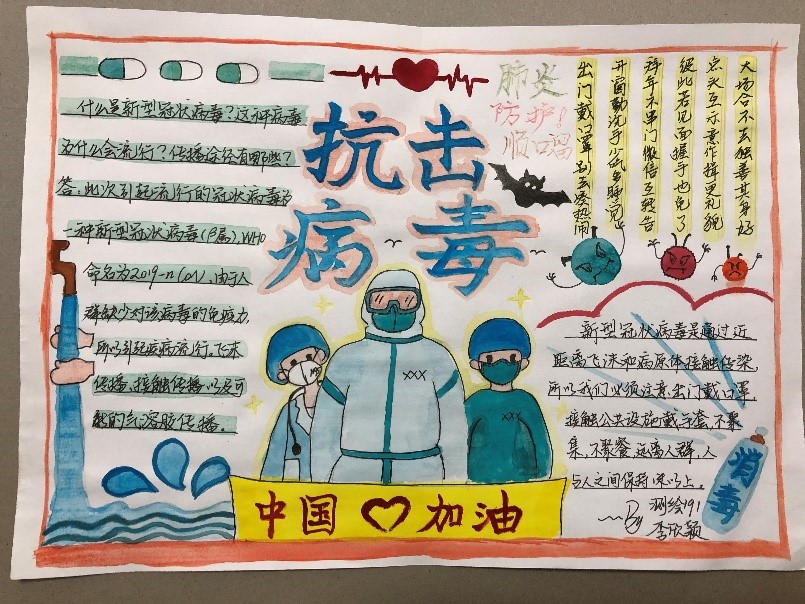 什么是新型冠状病毒？这种病毒
为什么会流行？传播途径有哪些？
答：此次引起流行的冠状病毒为
一种新型冠状病毒(β属)，WHO
命名为2019-nCoV，由于人
群缺少对该病毒的免疫力，
所以引起疫病流行。飞沫
传播、接触传播以及可
能的气溶胶传播。
抗击
病毒
肺炎
防护！
顺口溜
大场合不去独善其身好
点头互示意作揖更礼貌
彼此若见面握手也免了
拜年不串门微信互转告
开窗勤洗手少出多睡觉
出门戴口罩别去凑热闹
新型冠状病毒是通过近
距离飞沫和病原体接触传染，
所以我们必须注意出门戴口罩
接触公共设施戴手套，不聚
集，不聚餐，远离人群，人
与人之间保持
以上。
By 测绘191
李欣颖
消毒
XXX
XXX
中国加油